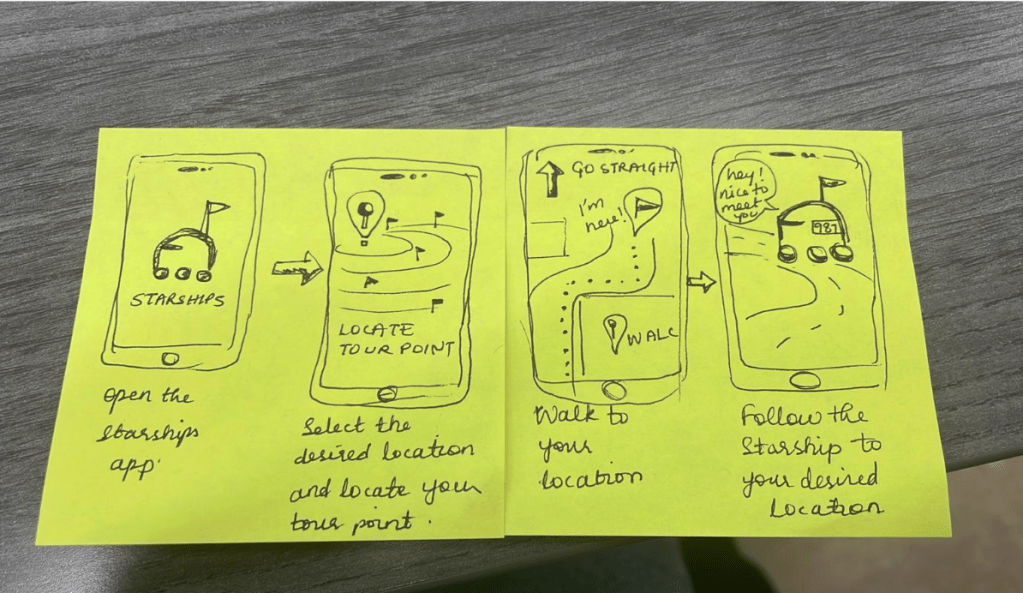 STARSHIPS
Open the
Starships
app.
LOCATE
TOUR POINT
Select the
desired location
and locate your
tour point.
GO STRAIGHT
I'm
here!
WALC
Walk to
your
location
hey!
nice to
meet
you
987
Follow the
Starship to
your desired
Location